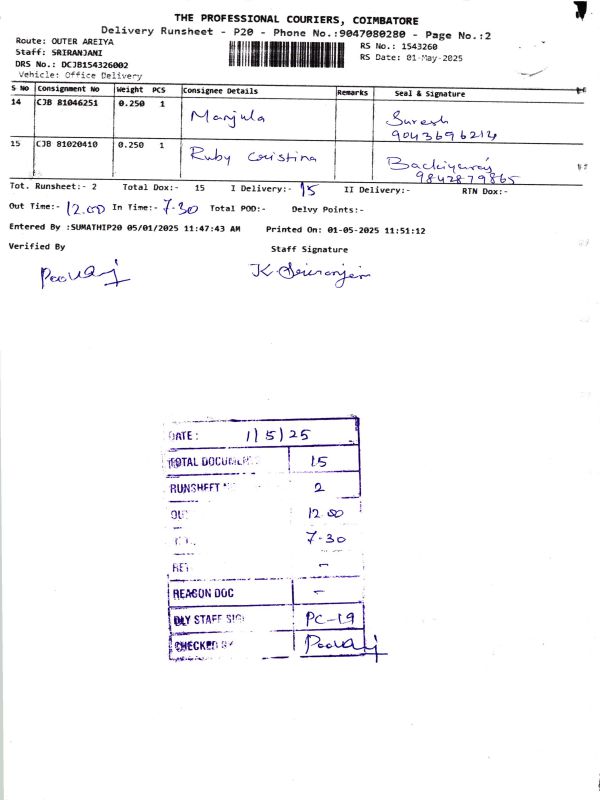 THE PROFESSIONAL COURIERS, COIMBATORE
Delivery Runsheet - P20 - Phone No.:9047080280 - Page No.:2
Route: OUTER AREIYA
RS No.: 1543260
Staff: SRIRANJANI
RS Date: 01-May-2025
DRS No.: DCJB154326002
Vehicle: Office Delivery
S No Consignment No Weight PCS Consignee Details Remarks Seal & Signature
14 CJB 81046251 0.250 1 Manjula Suresh
9043696214
15 CJB 81020410 0.250 1 Ruby Cristina Backiyaraj
9842879865
Tot. Runsheet:- 2 Total Dox:- 15 I Delivery:- 15 II Delivery:- RTN Dox:-
Out Time:- 12.00 In Time:- 7-30 Total POD:- Delvy Points:-
Entered By :SUMATHIP20 05/01/2025 11:47:43 AM Printed On: 01-05-2025 11:51:12
Verified By Staff Signature
DATE: 1/5/25
TOTAL DOCUMENT 15
RUNSHEET 2
OUT 12.00
7-30
RET -
REASON DOC -
DLY STAFF SIGN PC-19
CHECKED BY